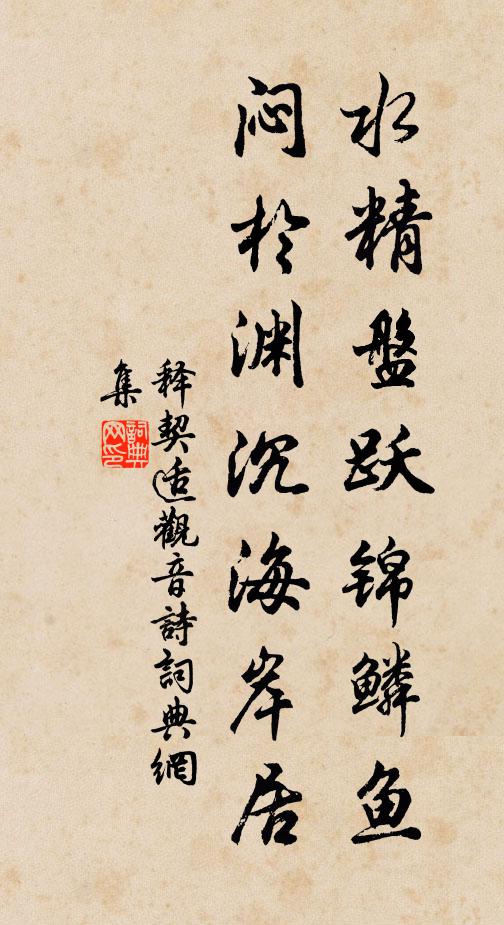 水精盤跃锦鳞鱼
闷於渊沉海岸居
释契适觀音詩詞典網
集
詞典
网印